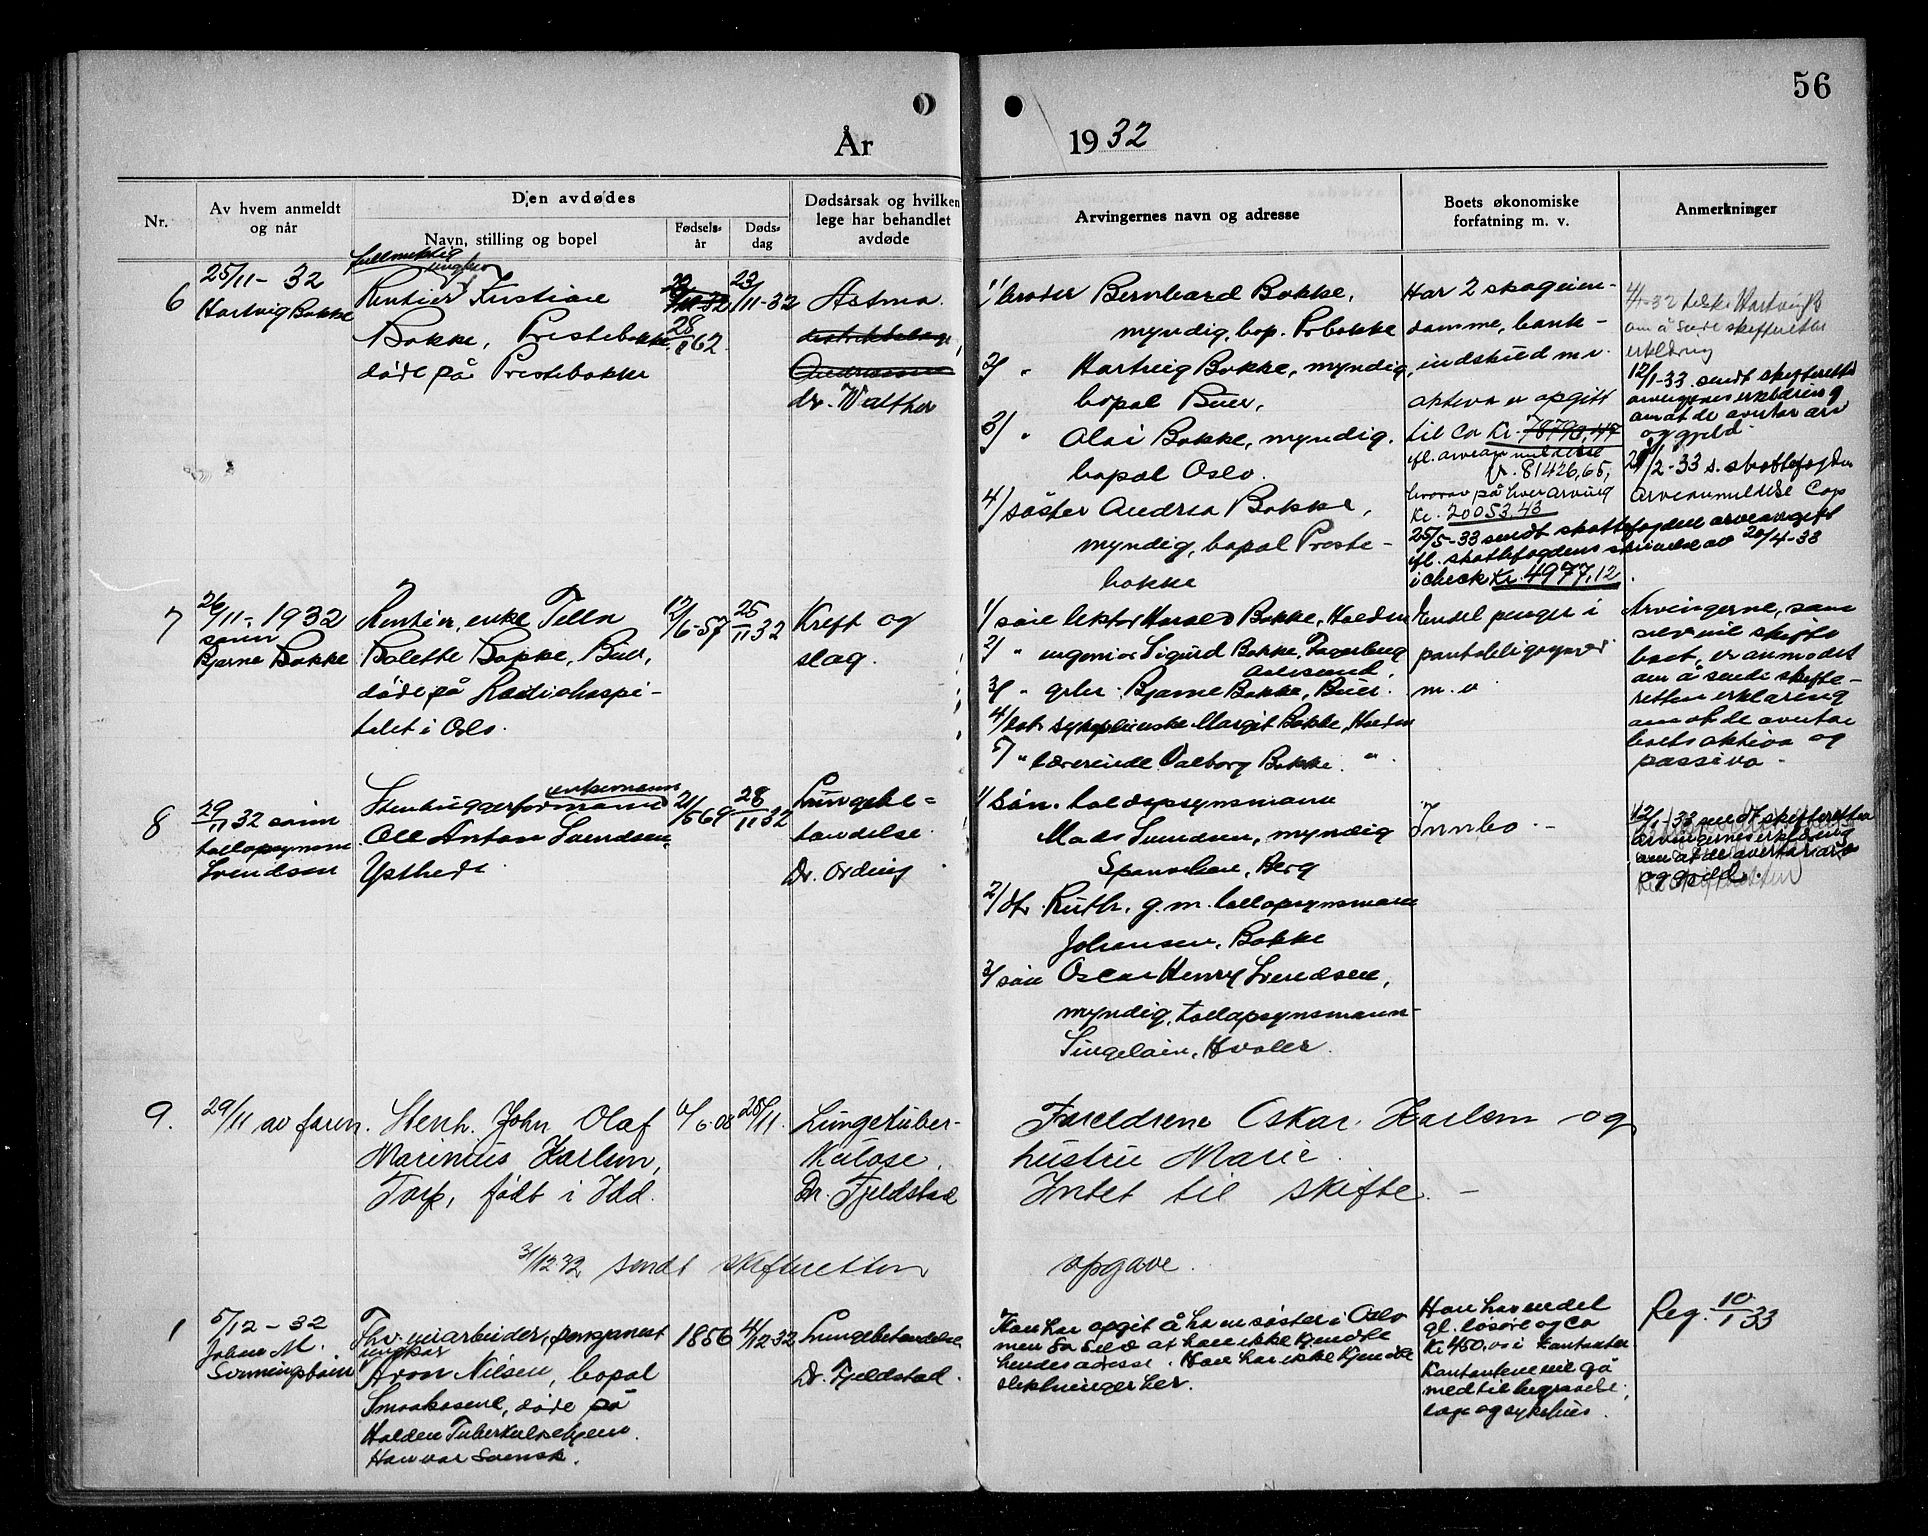 56
År 1932
Nr.
Av hvem anmeldt
og når
Den avdødes
Navn, stilling og bopel
Fødsels-
år
Døds-
dag
Dødsårsak og hvilken
lege har behandlet
avdøde
Arvingernes navn og adresse
Boets økonomiske
forfatning m. v.
Anmerkninger
6
25/11 - 32
Hartvig Bakke
fullmektig
ungkar
Rentier Kristian
Bakke, Prestebakke
døde på Prestebakke
28/8 62
23/11-32
Astma
dr. Walther
1/ broder Bernhard Bakke,
myndig, bop. Prbakke
2/ " Hartvig Bakke, myndig,
bopel Buer,
3/ " Olai Bakke, myndig.
bopel Oslo.
4/ søster Andrea Bakke,
myndig, bopel Preste-
bakke
Har 2 skogeien-
domme, bank-
indskud m.v.
aktiva er opgitt
til ca kr. 78790,47
ifl. arveanmeldelse
kr. 81426,65,
hvorav på hver arving
kr. 20053,43
25/5-33 sendt skattefogden arveavgift
ifl. skattefogdens skrivelse av 20/4-33
i check kr. 4977,12.
Hartvig B
om å sende skifteretten
erklæring
12/1-33 sendt skifteretten
arvingenes erklæring
om at de overtar arv
og gjeld.
2-33 s. skattefogden
arveanmeldelse
7
26/11 - 1932
sønn
Bjarne Bakke
Rentier, enke Tella
Bolette Bakke, Buer,
døde på Radiohospi-
talet i Oslo.
12/6-57
25/11 32
Kreft og
slag.
1/ søn lektor Harald Bakke, Halden
2/ " ingeniør Sigurd Bakke, Fagerborg
Aalesund,
3/ " grbr. Bjarne Bakke, Buer.
4/ dat. sykepleierske Margit Bakke, Halden
5/ " lærerinde Valborg Bakke. "
Endel penger i
pantobligasjoner
m. v
Arvingerne, som
selv vil skifte
boet, er anmodet
om å sende skifte-
retten erklæring
om at de overtar
boets aktiva og
passiva.
8
29/11 32 sønn
tollopsynsm
Svendsen
enkemann
Stenhuggerformann
Ole Anton Svendsen,
Ysthede
21/5 69
28/11 32
Lungebe-
tendelse.
Dr. Ording
1/ Søn. tollopsynsmann
Mads Svendsen, myndig
Sponvikan, Berg
2/ dtr. Ruth, g.m. tollopsynsmann
Johansen, Bakke
3/ søn Oscar Henry Svendsen,
myndig, tollopsynsmann
Singeløien, Hvaler.
Innbo. -
12/1-33 sendt skifteretten
arvingernes erklæring
om at de overtar arv
og gjeld.
9.
29/11 av faren.
Stenh. John Olaf
Marinius Karlsen,
Torp, født i Idd.
/6-08
25/11.
Lungetuber-
kulose.
Dr. Fjeldstad
Foreldrene Oskar Karlsen og
hustru Marie.
Intet til skifte. -
31/12 32 sendt skifteretten opgave.
1
5/12 - 32
Johan M.
Fhv. veiarbeider, pengenest
ungkar
Aron Nilsen, bopel
døde på
Halden Tuberkulosehjem.
Han var svensk.
1856
4/12 32
Lungebetendelse
Dr. Fjeldstad.
Han har opgit å ha en søster i Oslo
men sa selv at han ikke kjendte
hendes adresse. Han har ikke kjendte
slektninger her.
Han har endel
gl. løsøre og ca
kr. 450,00 i kontanter
Kontantene vil gå
med til begravelse,
lege og sykehus.
Reg. 10/1 33